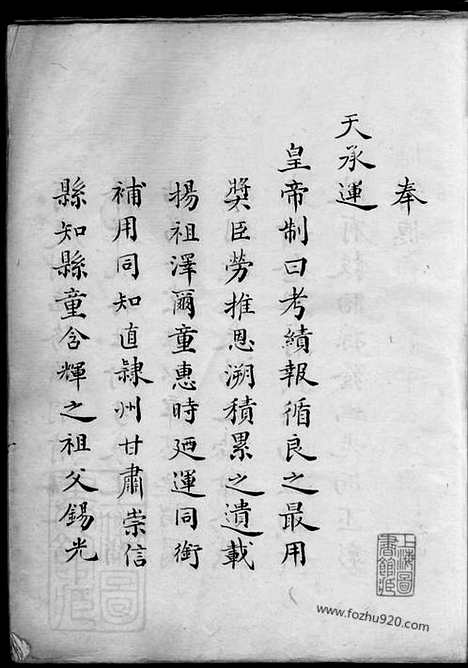 奉
天承運
皇帝制曰考績報循良之最用
奬臣勞推恩溯積累之遺載
揚祖澤爾童惠時廼運同銜
補用同知直隸州甘肅崇信
縣知縣童含輝之祖父錫光
上海圖
書館藏
www.fozhu920.com